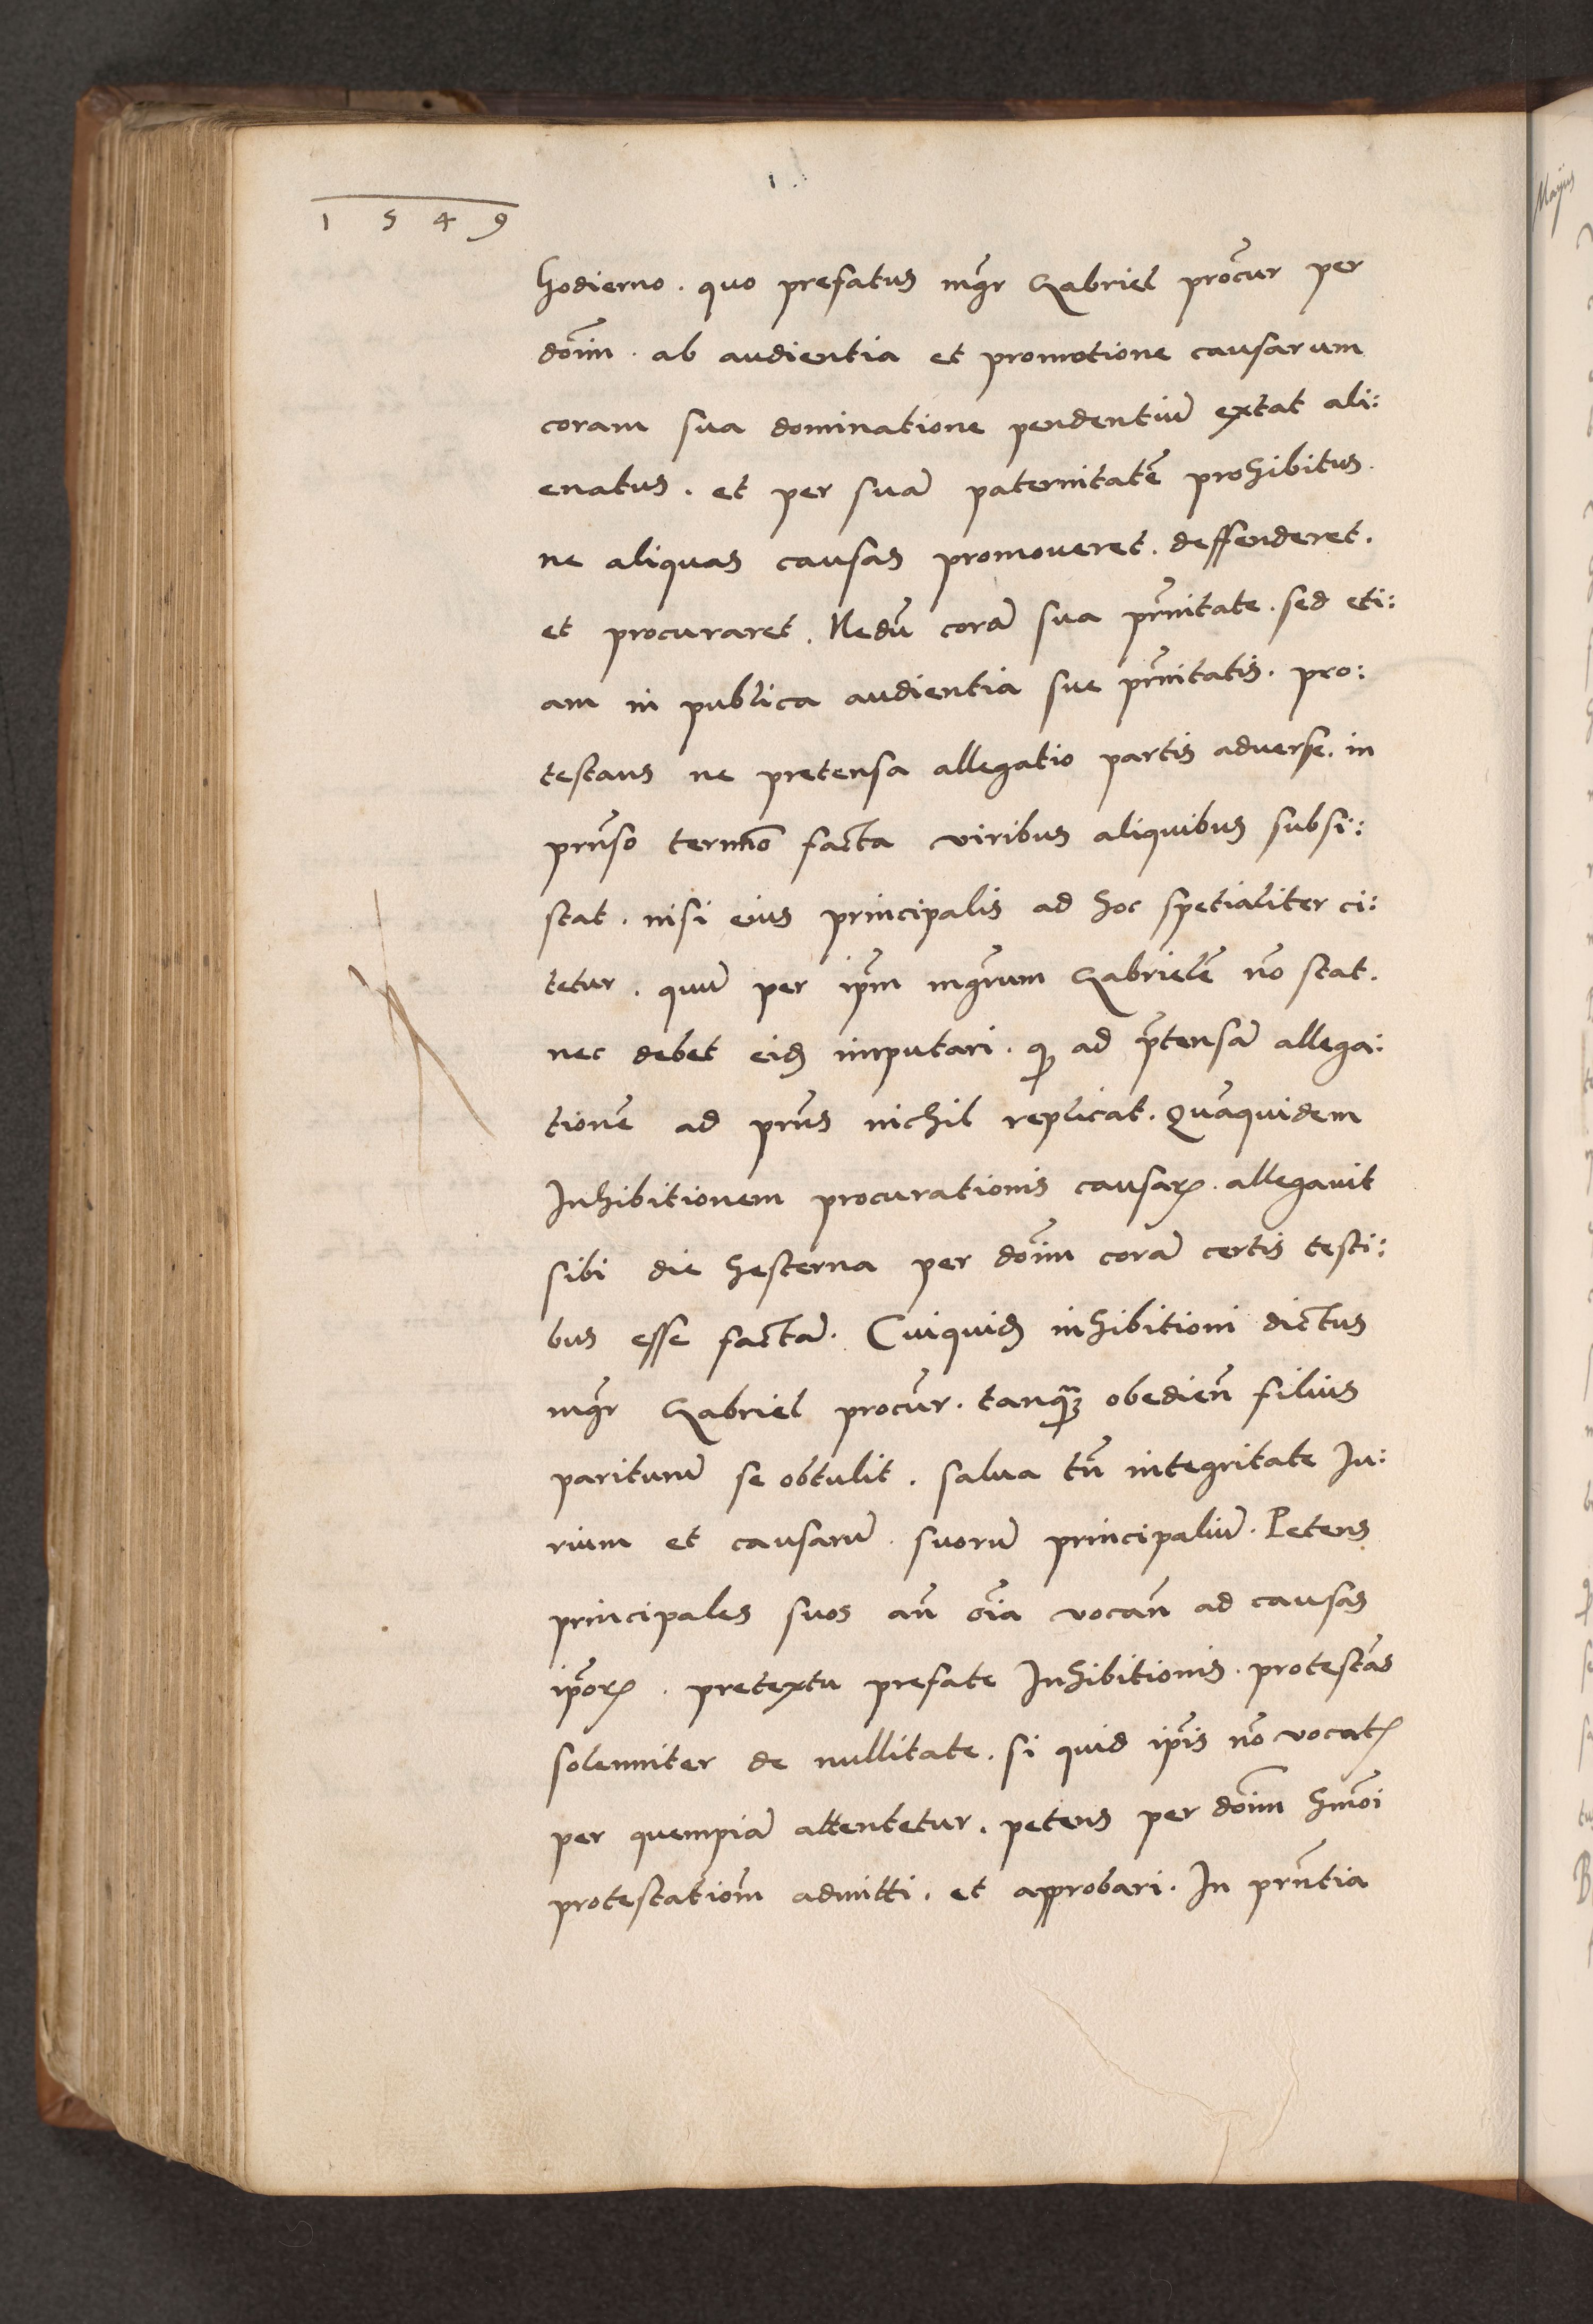 1549
hodierno. quo prefatus mg̃r Gabriel procũr per
dom̃m. ab audientia et promotione causarum
coram sua dominatione pendentiũ extat ali:
enatus. et per suã paternitatẽ prohibitus.
ne aliquas causas promoueret. deffenderet.
et procuraret. Nedũ corã sua pr̃nitate. sed eti:
am in publica audientia sue pr̃nitatis. pro:
testans ne pretensa allegatio partis aduerse. in
prñso termĩo facta viribus aliquibus subsi:
stat. nisi eius principalis ad hoc spetialiter ci:
tetur. quũ per ip̃m mgr̃um Gabrielẽ nõ stat.
nec debet eidꝫ imputari. qꝫ ad p̃tensã allega:
tionẽ ad prñs nichil replicat. Quãquidem
Inhibitionem procurationis causaꝝ. allegauit
sibi die hesterna per dom̃m corã certis testi:
bus esse factã. Cuiquidꝫ inhibitioni dictus
mg̃r Gabriel procũr. tanq̃ꝫ obedieñ filius
pariturũ se obtulit. salua tñ integritate Iu:
rium et causarũ suorũ principaliũ. Petens
principales suos añ oĩa vocañ ad causas
ip̃oꝝ. pretextu prefate Inhibitionis. protestãs
solemniter de nullitate. si quid ip̃is nõ vocatꝭ
per quempiã attentetur. petens per dom̃m hmõi
protestatioñm admitti. et approbari. In prñtia
Maijus